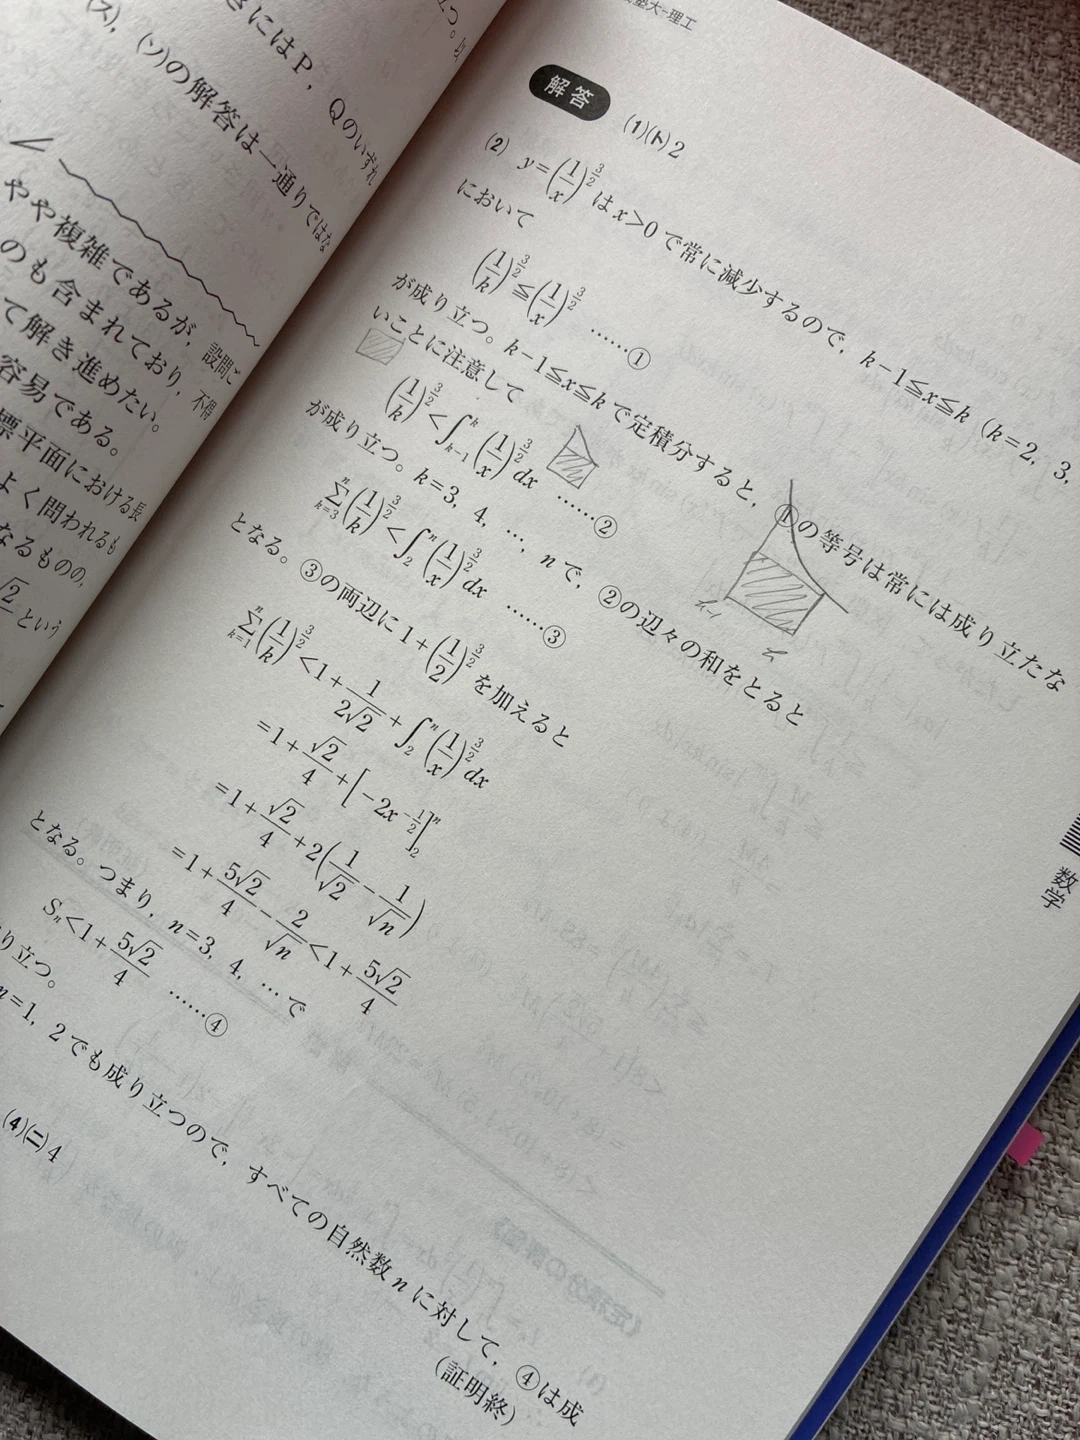 きにはP，Qのいずれ
(ス)，(ソ)の解答は一通りではな
やや複雑であるが，設問ご
のも含まれており，不得
て解き進めたい。
容易である。
標平面における長
よく問われるも
なるものの，
√2 という
塾大-理工
解答
(1)(ト) 2
(2) y=(1/x)^{3/2} は x>0 で常に減少するので，k−1≦x≦k (k=2, 3,
において
(1/k)^{3/2}≦(1/x)^{3/2} ……①
が成り立つ。k−1≦x≦k で定積分すると，①の等号は常には成り立たな
いことに注意して
(1/k)^{3/2}<∫_{k−1}^{k}(1/x)^{3/2}dx ……②
が成り立つ。k=3, 4, …, n で，②の辺々の和をとると
Σ_{k=3}^{n}(1/k)^{3/2}<∫_{2}^{n}(1/x)^{3/2}dx ……③
k-1
k
となる。③の両辺に 1+(1/2)^{3/2} を加えると
Σ_{k=1}^{n}(1/k)^{3/2}<1+1/(2√2)+∫_{2}^{n}(1/x)^{3/2}dx
=1+√2/4+[−2x^{−1/2}]_{2}^{n}
=1+√2/4+2(1/√2−1/√n)
=1+5√2/4−2/√n<1+5√2/4
となる。つまり，n=3, 4, … で
S_n<1+5√2/4 ……④
り立つ。
n=1, 2 でも成り立つので，すべての自然数 n に対して，④は成
(証明終)
(4)(ニ) 4
数学